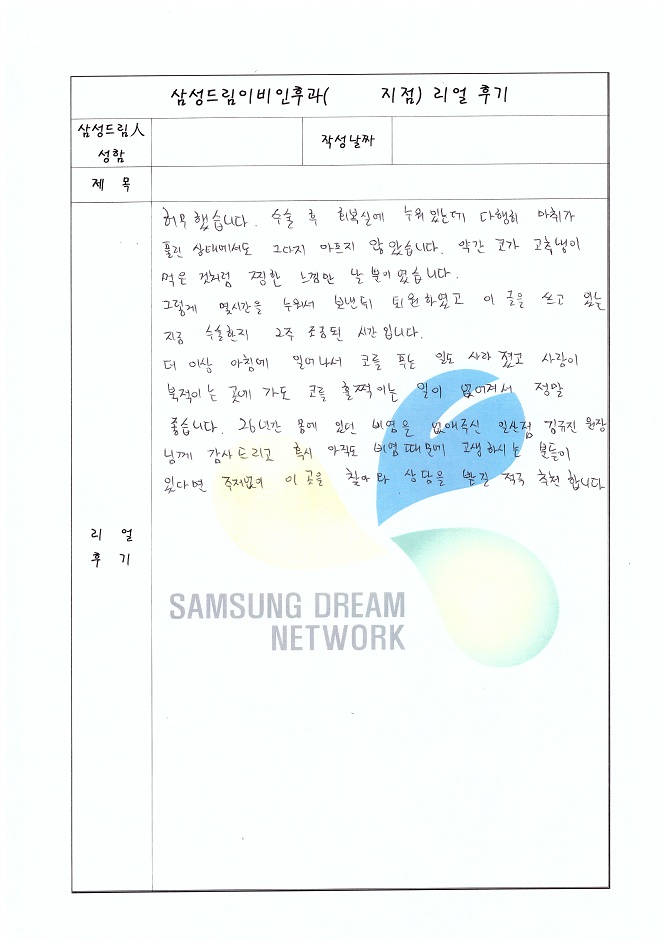 삼성드림이비인후과( 지점) 리얼 후기
삼성드림人
성함
작성날짜
제 목
허무했습니다. 수술 후 회복실에 누워있는데 다행히 마취가
풀린 상태에서도 그다지 아프지 않았습니다. 약간 코가 고추냉이
먹은 것처럼 찡한 느낌만 날 뿐이였습니다.
그렇게 몇시간을 누워서 보낸뒤 퇴원하였고 이 글을 쓰고 있는
지금 수술한지 2주 조금된 시간입니다.
더 이상 아침에 일어나서 코를 푸는 일도 사라졌고 사람이
북적이는 곳에 가도 코를 훌쩍이는 일이 없어져서 정말
좋습니다. 26년간 몸에 있던 비염을 없애주신 일산점 김규진 원장
님께 감사드리고 혹시 아직도 비염때문에 고생하시는 분들이
있다면 주저없이 이 곳을 찾아와 상담을 받길 적극 추천합니다
리 얼
후 기
SAMSUNG DREAM
NETWORK